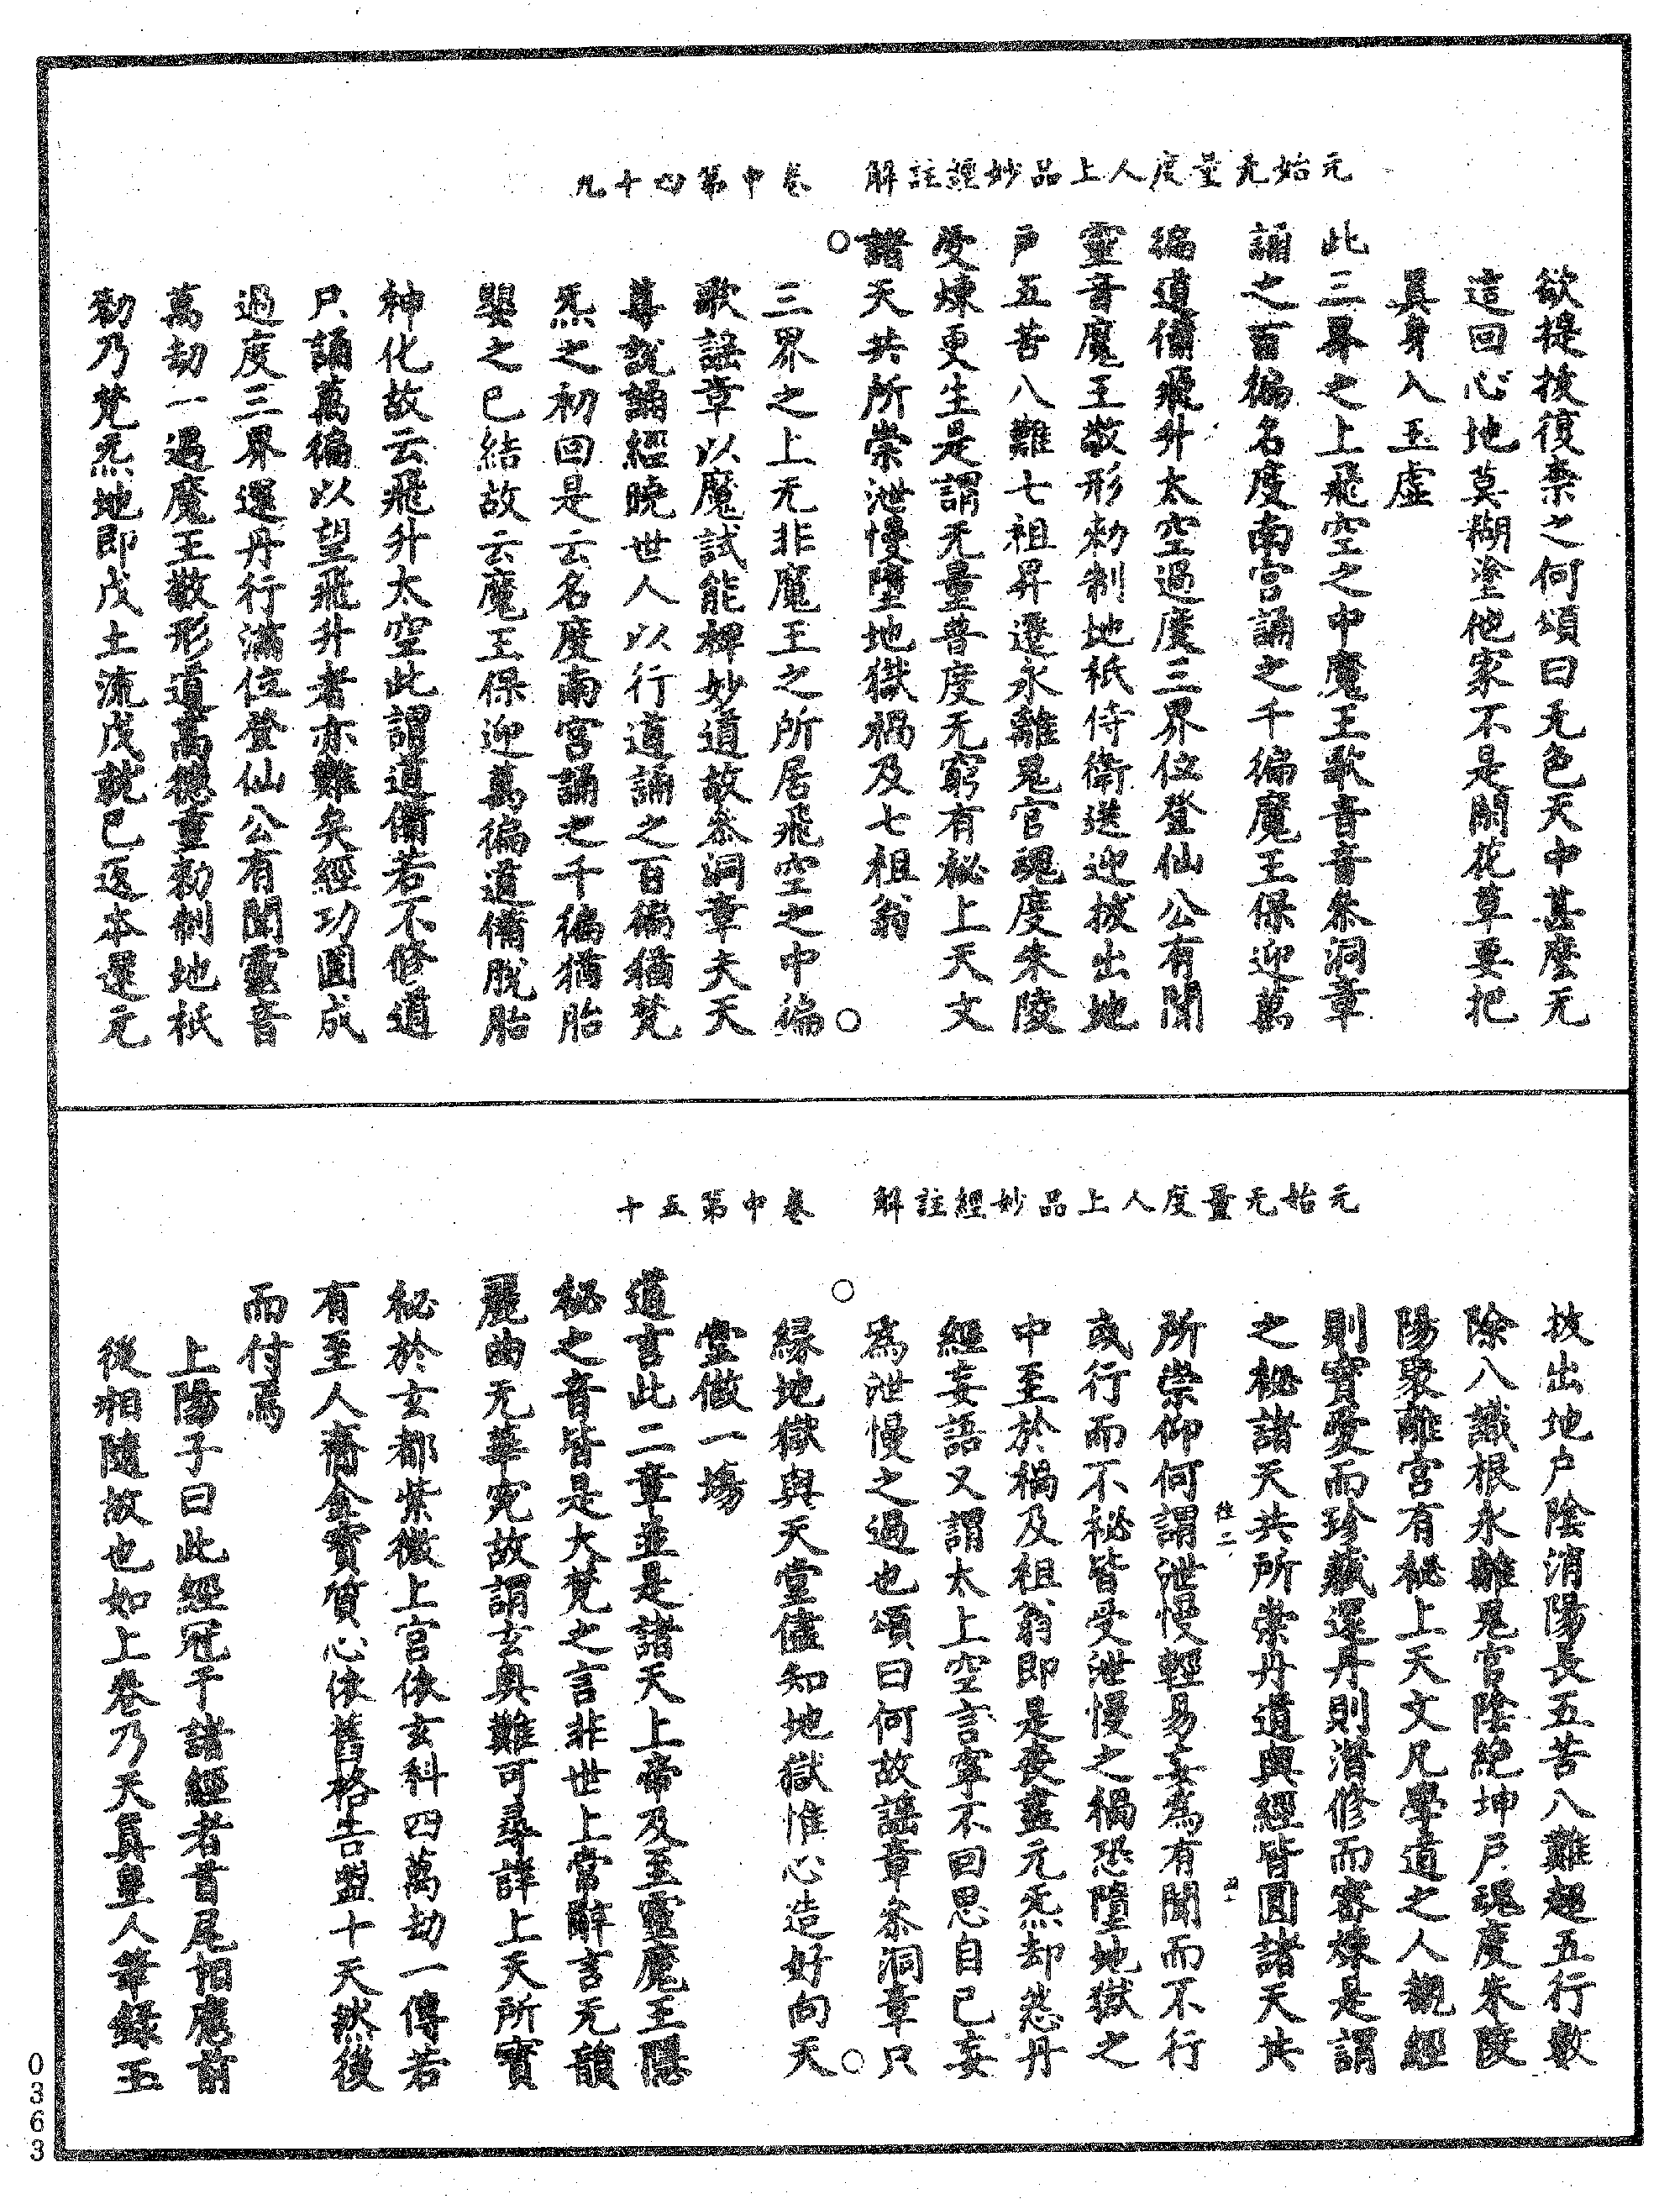 元始无量度人上品妙經註解　卷中第四十九
欲提拔復奈之何頌曰无色天中甚麼无
這回心地莫糊塗他家不是閑花草要把
真身入玉虛
此三界之上飛空之中魔王歌音音參洞章
誦之百徧名度南宮誦之千徧魔王保迎萬
徧道備飛升太空過度三界位登仙公有聞
靈音魔王敬形勑制地祇侍衛送迎拔出地
戶五苦八難七祖昇遷永離鬼官魂度朱陵
受煉更生是謂无量普度无窮有祕上天文
諸天共所崇泄慢墮地獄禍及七祖翁
三界之上无非魔王之所居飛空之中徧
歌謠章以魔試能稗妙道故參洞章夫天
尊說誦經曉世人以行道誦之百徧猶梵
炁之初回是云名度南宮誦之千徧猶胎
嬰之已結故云魔王保迎萬徧道備脫胎
神化故云飛升太空此謂道備若不修道
只誦萬徧以望飛升者亦難矣經功圓成
過度三界還丹行滿位登仙公有聞靈音
萬劫一遇魔王敬形道高德重勑制地祇
勑乃梵炁地即戊土流戊就已返本還元
元始无量度人上品妙經註解　卷中第五十
拔出地户陰消陽長五苦八難超五行數
除八識根永離鬼官陰絕坤戶魂度朱陵
陽聚離宮有祕上天文凡學道之人觀經
則寶愛而珍藏還丹則潛修而密煉是謂
之祕諸天共所崇丹道與經皆圓諸天共
所崇仰何謂泄慢輕易妄為有聞而不行
或行而不祕皆受泄慢之禍恐墮地獄之
中至於禍及祖翁即是喪盡元炁却怨丹
經妄語又謂太上空言寧不回思自己妄
為泄慢之過也頌曰何故謠章參洞章只
緣地獄與天堂儘知地獄惟心造好向天
堂做一場
道言此二章並是諸天上帝及至靈魔王隱
祕之音皆是大梵之言非世上常辭言无韻
麗曲无華宛故謂玄奧難可尋詳上天所寶
祕於玄都紫微上宮依玄科四萬劫一傳若
有至人齎金寶質心依舊格告盟十天然後
而付焉
上陽子曰此經冠于諸經者首尾相應前
後相隨故也如上卷乃天真皇人筆錄玉
0363